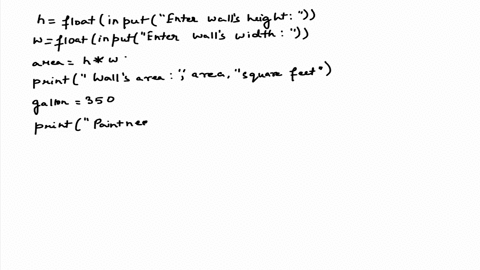 h = float(input("Enter wall's height: "))
w = float(input("Enter wall's width : "))
area = h * w
print(" Wall's area : ", area, "square feet")
gallon = 350
print(" Paint nee